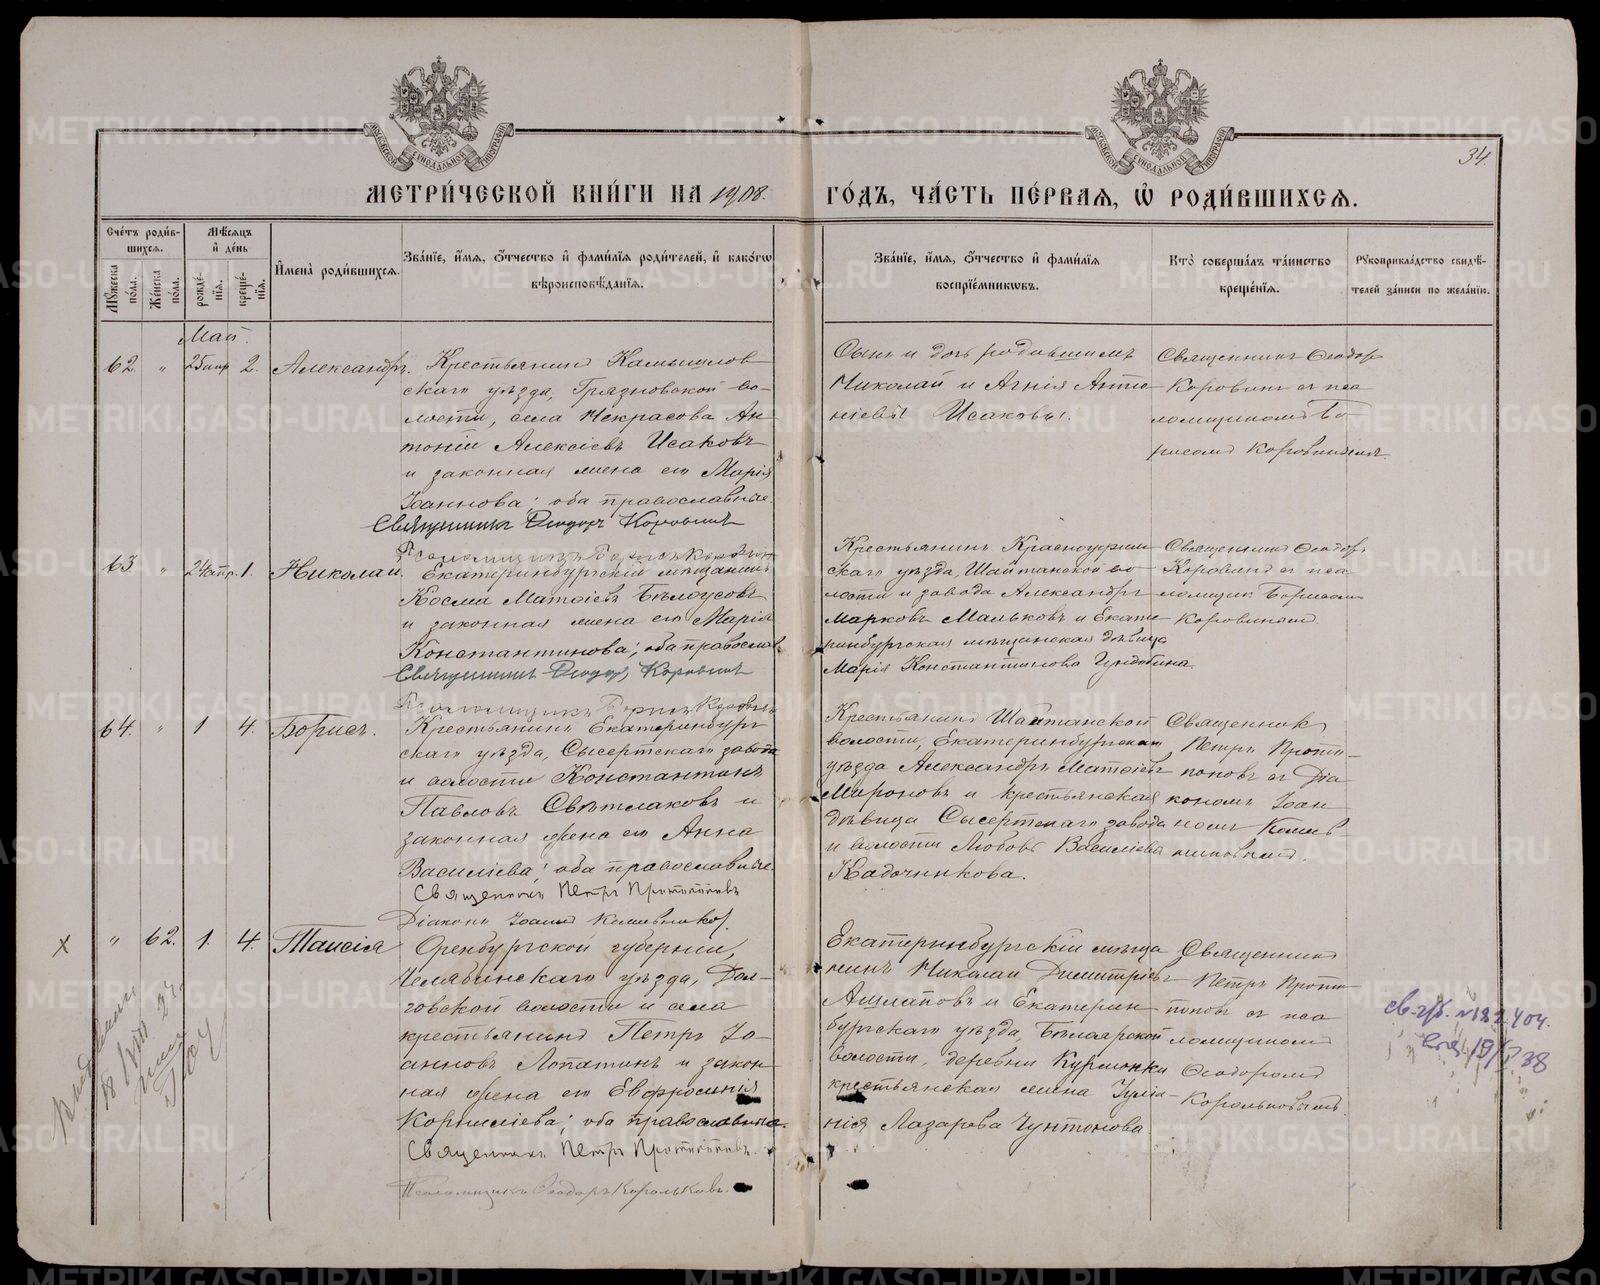 34.
МЕТРИ́ЧЕСКОЙ КНИ́ГИ НА 1908. ГО́ДЪ, ЧА́СТЬ ПЕ́РВАЯ, Ѡ҆ РОДИ́ВШИХСЯ.
Сче́тъ роди́в-
шихся.
Мꙋ́жеска по́ла.
Же́нска по́ла.
Мѣ́сяцъ
и҆ де́нь
рожде́-
нїя.
креще́-
нїя.
И҆мена̀ роди́вшихся.
Зва́нїе, и҆́мя, ѻ҆́тчество и҆ фами́лїя роди́телей, и҆ како́гѡ
вѣроисповѣ́данїя.
Зва́нїе, и҆́мя, ѻ҆́тчество и҆ фами́лїя
воспрїе́мникѡвъ.
Кто̀ соверша́лъ та́инство
креще́нїя.
Рꙋкоприкла́дство свидѣ́-
телей за́писи по жела́нїю.
Май.
62. " 25 апр 2. Александръ.
Крестьянинъ Камышлов
скаго уѣзда, Грязновской во-
лости, села Некрасова Ан
тоній Алексіевъ Исаковъ
и законная жена его Марія
Іоаннова; оба православные.
Священникъ Ѳеодоръ Коровинъ
Псаломщикъ Борисъ Коровин
Сынъ и дочь родившимъ
Николай и Агнія Анто
ніевы Исаковы.
Священникъ Ѳеодор
Коровинъ съ пса
ломщикомъ Бо
рисомъ Коровинымъ.
63 " 24 апр. 1. Николай.
Екатеринбургскій мѣщанинъ
Косма Матѳіевъ Бѣлоусовъ
и законная жена его Марія
Константинова; оба православ
Священникъ Ѳеодоръ Коровинъ
Псаломщикъ Борисъ Коровинъ
Крестьянинъ Красноуфим
скаго уѣзда, Шайтанской во
лости и завода Александръ
Марковъ Мальковъ и Екате
ринбургская мѣщанская дѣвица
Марія Константинова
Священникъ Ѳеодоръ
Коровинъ съ пса
ломщик Борисом
Коровинымъ.
64. " 1 4. Борисъ.
Крестьянинъ Екатеринбург
скаго уѣзда, Сысертскаго завода
и волости Константинъ
Павловъ Свѣтлаковъ и
законная жена его Анна
Василіева; оба православные.
Священникъ Петръ Протопоповъ
Діаконъ Іоаннъ
Крестьянинъ Шайтанской
волости, Екатеринбургскаго
уѣзда Александръ Матѳіевъ
Мироновъ и крестьянская
дѣвица Сысертскаго завода
и волости Любовь Василіева
Кадочникова.
Священникъ
Петръ Прото-
поповъ съ Діа
кономъ Іоан
номъ
X " 62. 1. 4. Таисія
Оренбургской губерніи,
Челябинскаго уѣзда, Дол-
говской волости и села
крестьянинъ Петръ Іо-
анновъ Лопатинъ и закон
ная жена его Евфросинія
Корниліева; оба православные.
Священникъ Петръ Протопоповъ.
Псаломщикъ Ѳеодоръ Корольковъ.
Екатеринбургскій мѣща
нинъ Николай Димитріевъ
Ашлаповъ и Екатерин
бургскаго уѣзда, Бѣлоярской
волости, деревни Курманки
крестьянская жена Іуліа-
нія Лазарева Чунтонова
Священникъ
Петръ Прото
поповъ съ пса
ломщикомъ
Ѳеодоромъ
Корольковымъ.